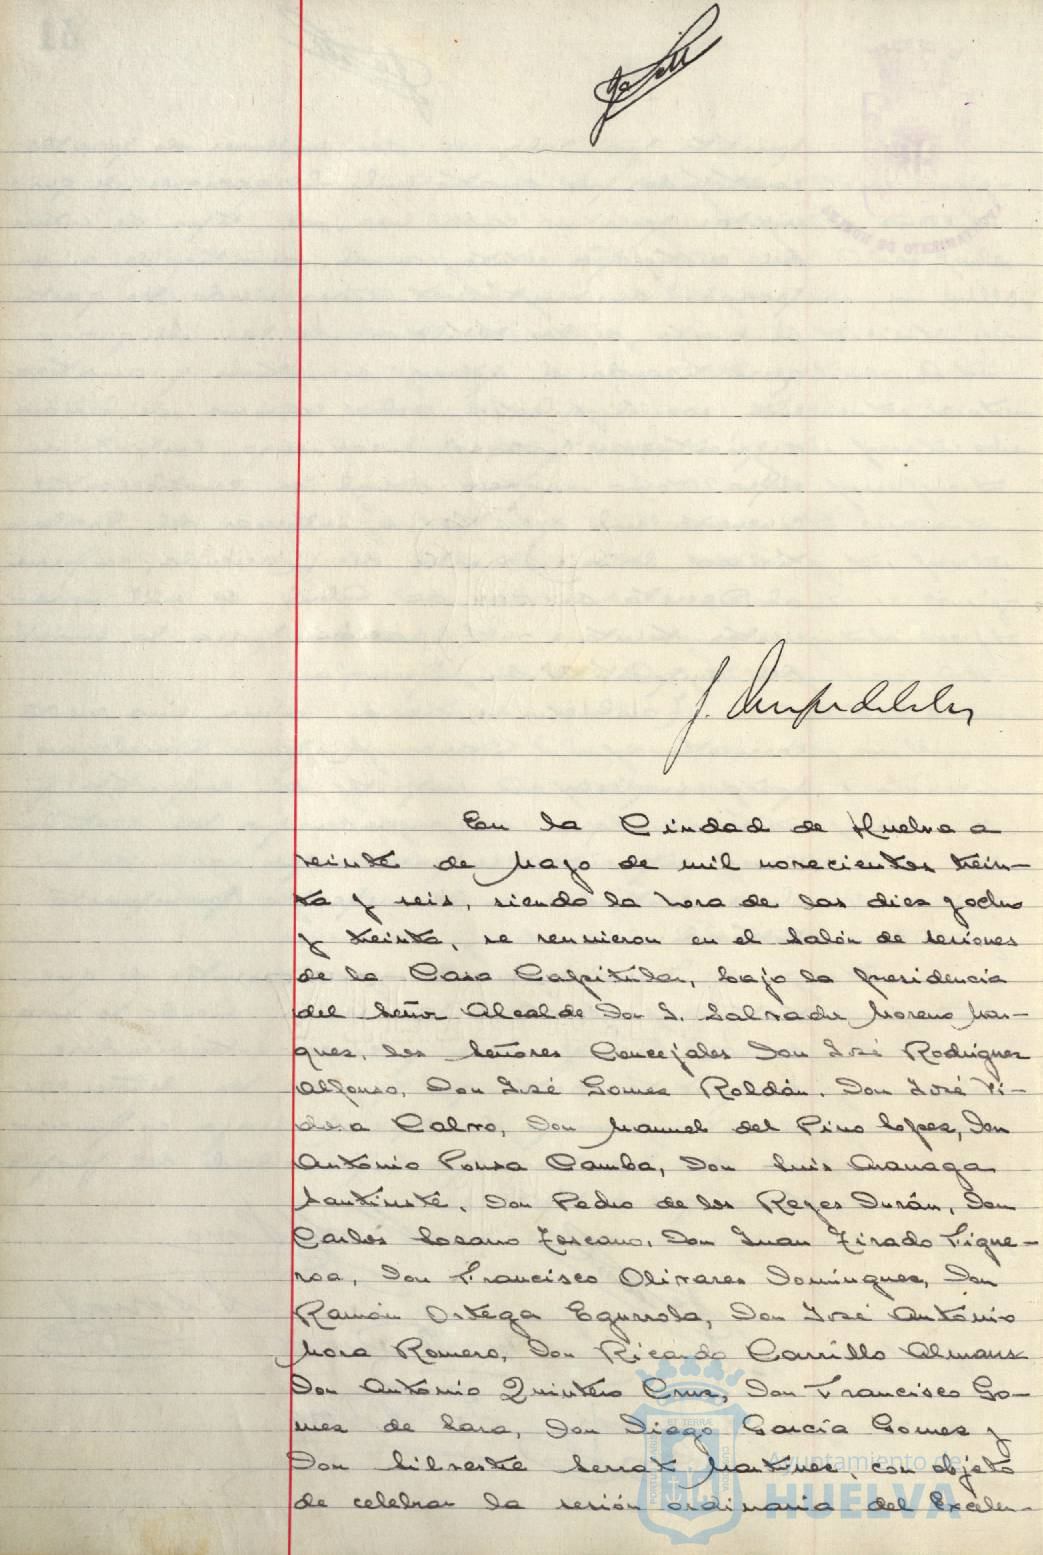 En la Ciudad de Huelva a
veinte de Mayo de mil novecientos trein-
ta y seis, siendo la hora de las diez y ocho
y treinta, se reunieron en el Salón de Sesiones
de la Casa Capitular, bajo la presidencia
del Señor Alcalde Don S. Salvador Moreno Mar-
quez, los Señores Concejales Don José Rodriguez
Alfonso, Don José Gomez Roldán, Don José Vi-
Calvo, Don Manuel del Pino Lopez, Don
Antonio Pousa Camba, Don Luis
Don Pedro de los Reyes Durán, Don
Carlos Lozano Toscano, Don Juan Tirado Figue-
roa, Don Francisco Olivares Dominguez, Don
Ramón Ortega Don José Antonio
Mora Romero, Don Ricardo Carrillo Almans
Don Antonio Quintero Cruz, Don Francisco Go-
mez de Lara, Don Diego García Gomez y
Don Silvestre Martinez, con objeto
de celebrar la sesión ordinaria del Excelen-
Ayuntamiento de
HUELVA